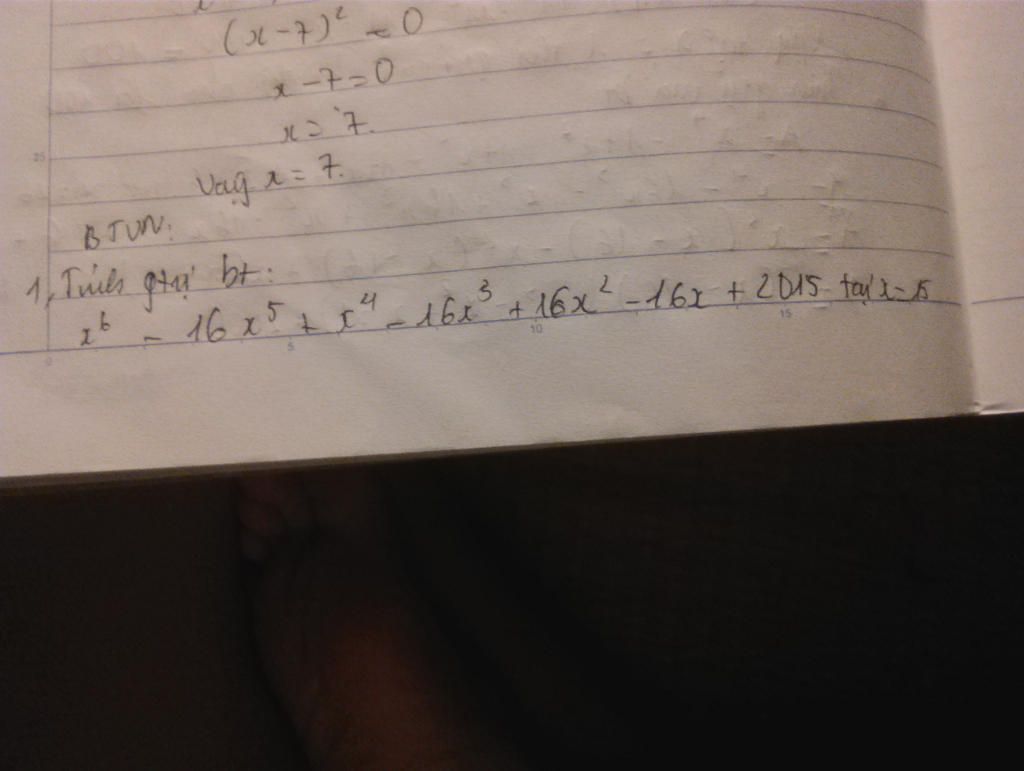 (x-7)² = 0
x-7=0
x = 7.
Vậy x = 7.
BTVN:
1, Tính gtrị bt:
x⁶ - 16x⁵ + x⁴ - 16x³ + 16x² - 16x + 2015 tại x = 15
25
0 5 10 15